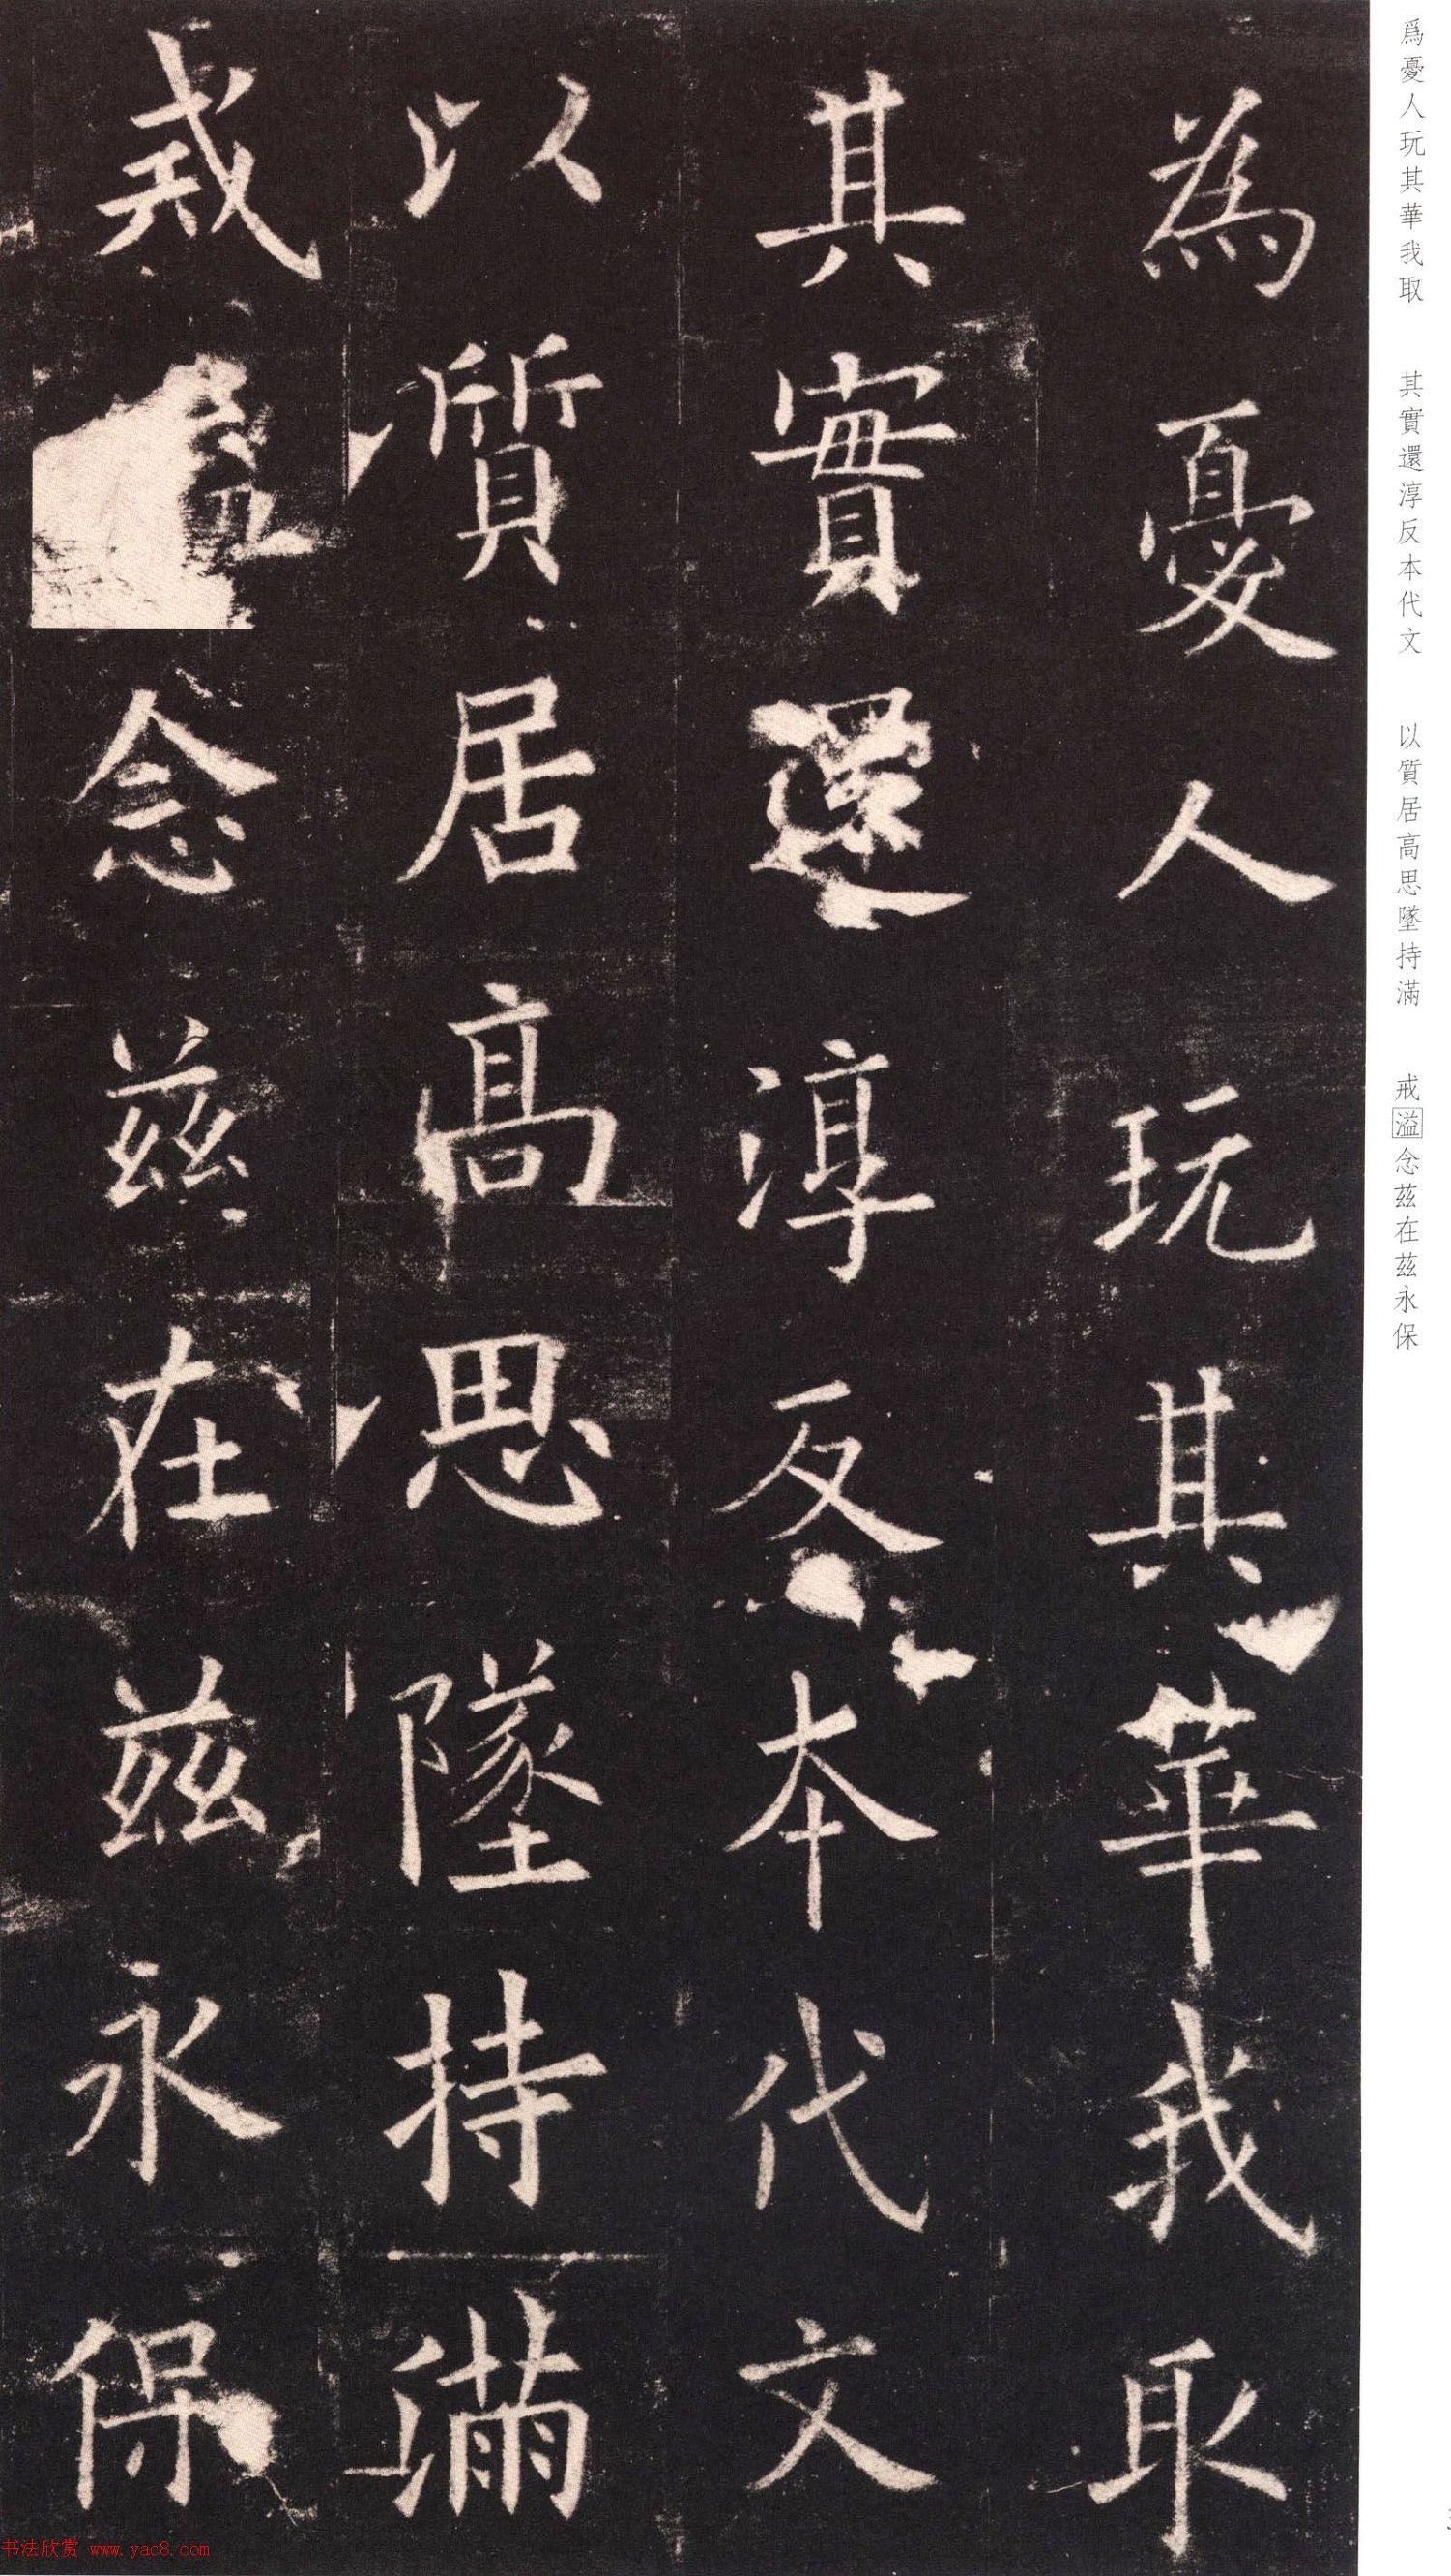 為憂人玩其華我取
其實還淳反本代文
以質居高思墜持滿
戒溢念茲在茲永保
爲憂人玩其華我取 其實還淳反本代文 以質居高思墜持滿 戒溢念茲在茲永保
书法欣赏 www.yac8.com